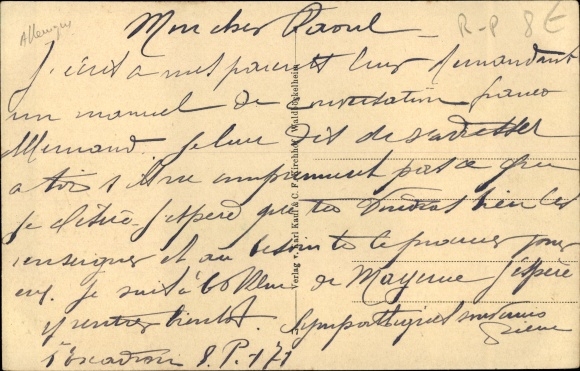 Allemagne
R-P 8€
Mon cher Raoul
J'écris à mes parents leur demandant
un manuel de conversation franco
Allemand. Je leur dis de s'adresser
à toi s'ils ne comprennent pas ce que
je désire. J'espère que tu voudras bien les
renseigner et au besoin te le procurer pour
eux. Je suis à 60 Klm de Mayence j'espère
y rentrer bientôt. Sympathiques
Pierre
Escadron S.P. 171
Verlag v. Karl Kauf & C. F. Kirchhof, Waldböckelheim